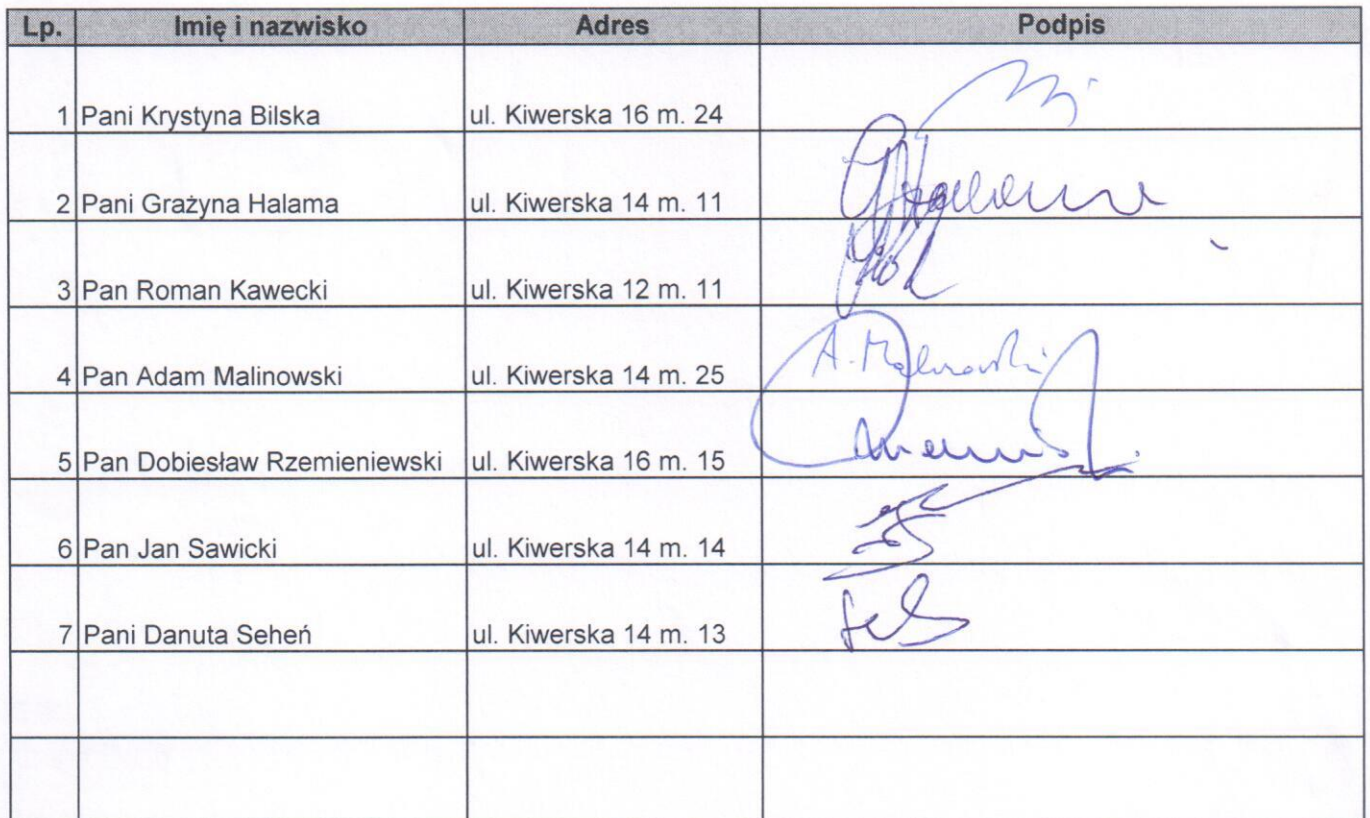 Lp. Imię i nazwisko Adres Podpis
1 Pani Krystyna Bilska ul. Kiwerska 16 m. 24
2 Pani Grażyna Halama ul. Kiwerska 14 m. 11
3 Pan Roman Kawecki ul. Kiwerska 12 m. 11
4 Pan Adam Malinowski ul. Kiwerska 14 m. 25 A. Malinowski
5 Pan Dobiesław Rzemieniewski ul. Kiwerska 16 m. 15
6 Pan Jan Sawicki ul. Kiwerska 14 m. 14
7 Pani Danuta Seheń ul. Kiwerska 14 m. 13